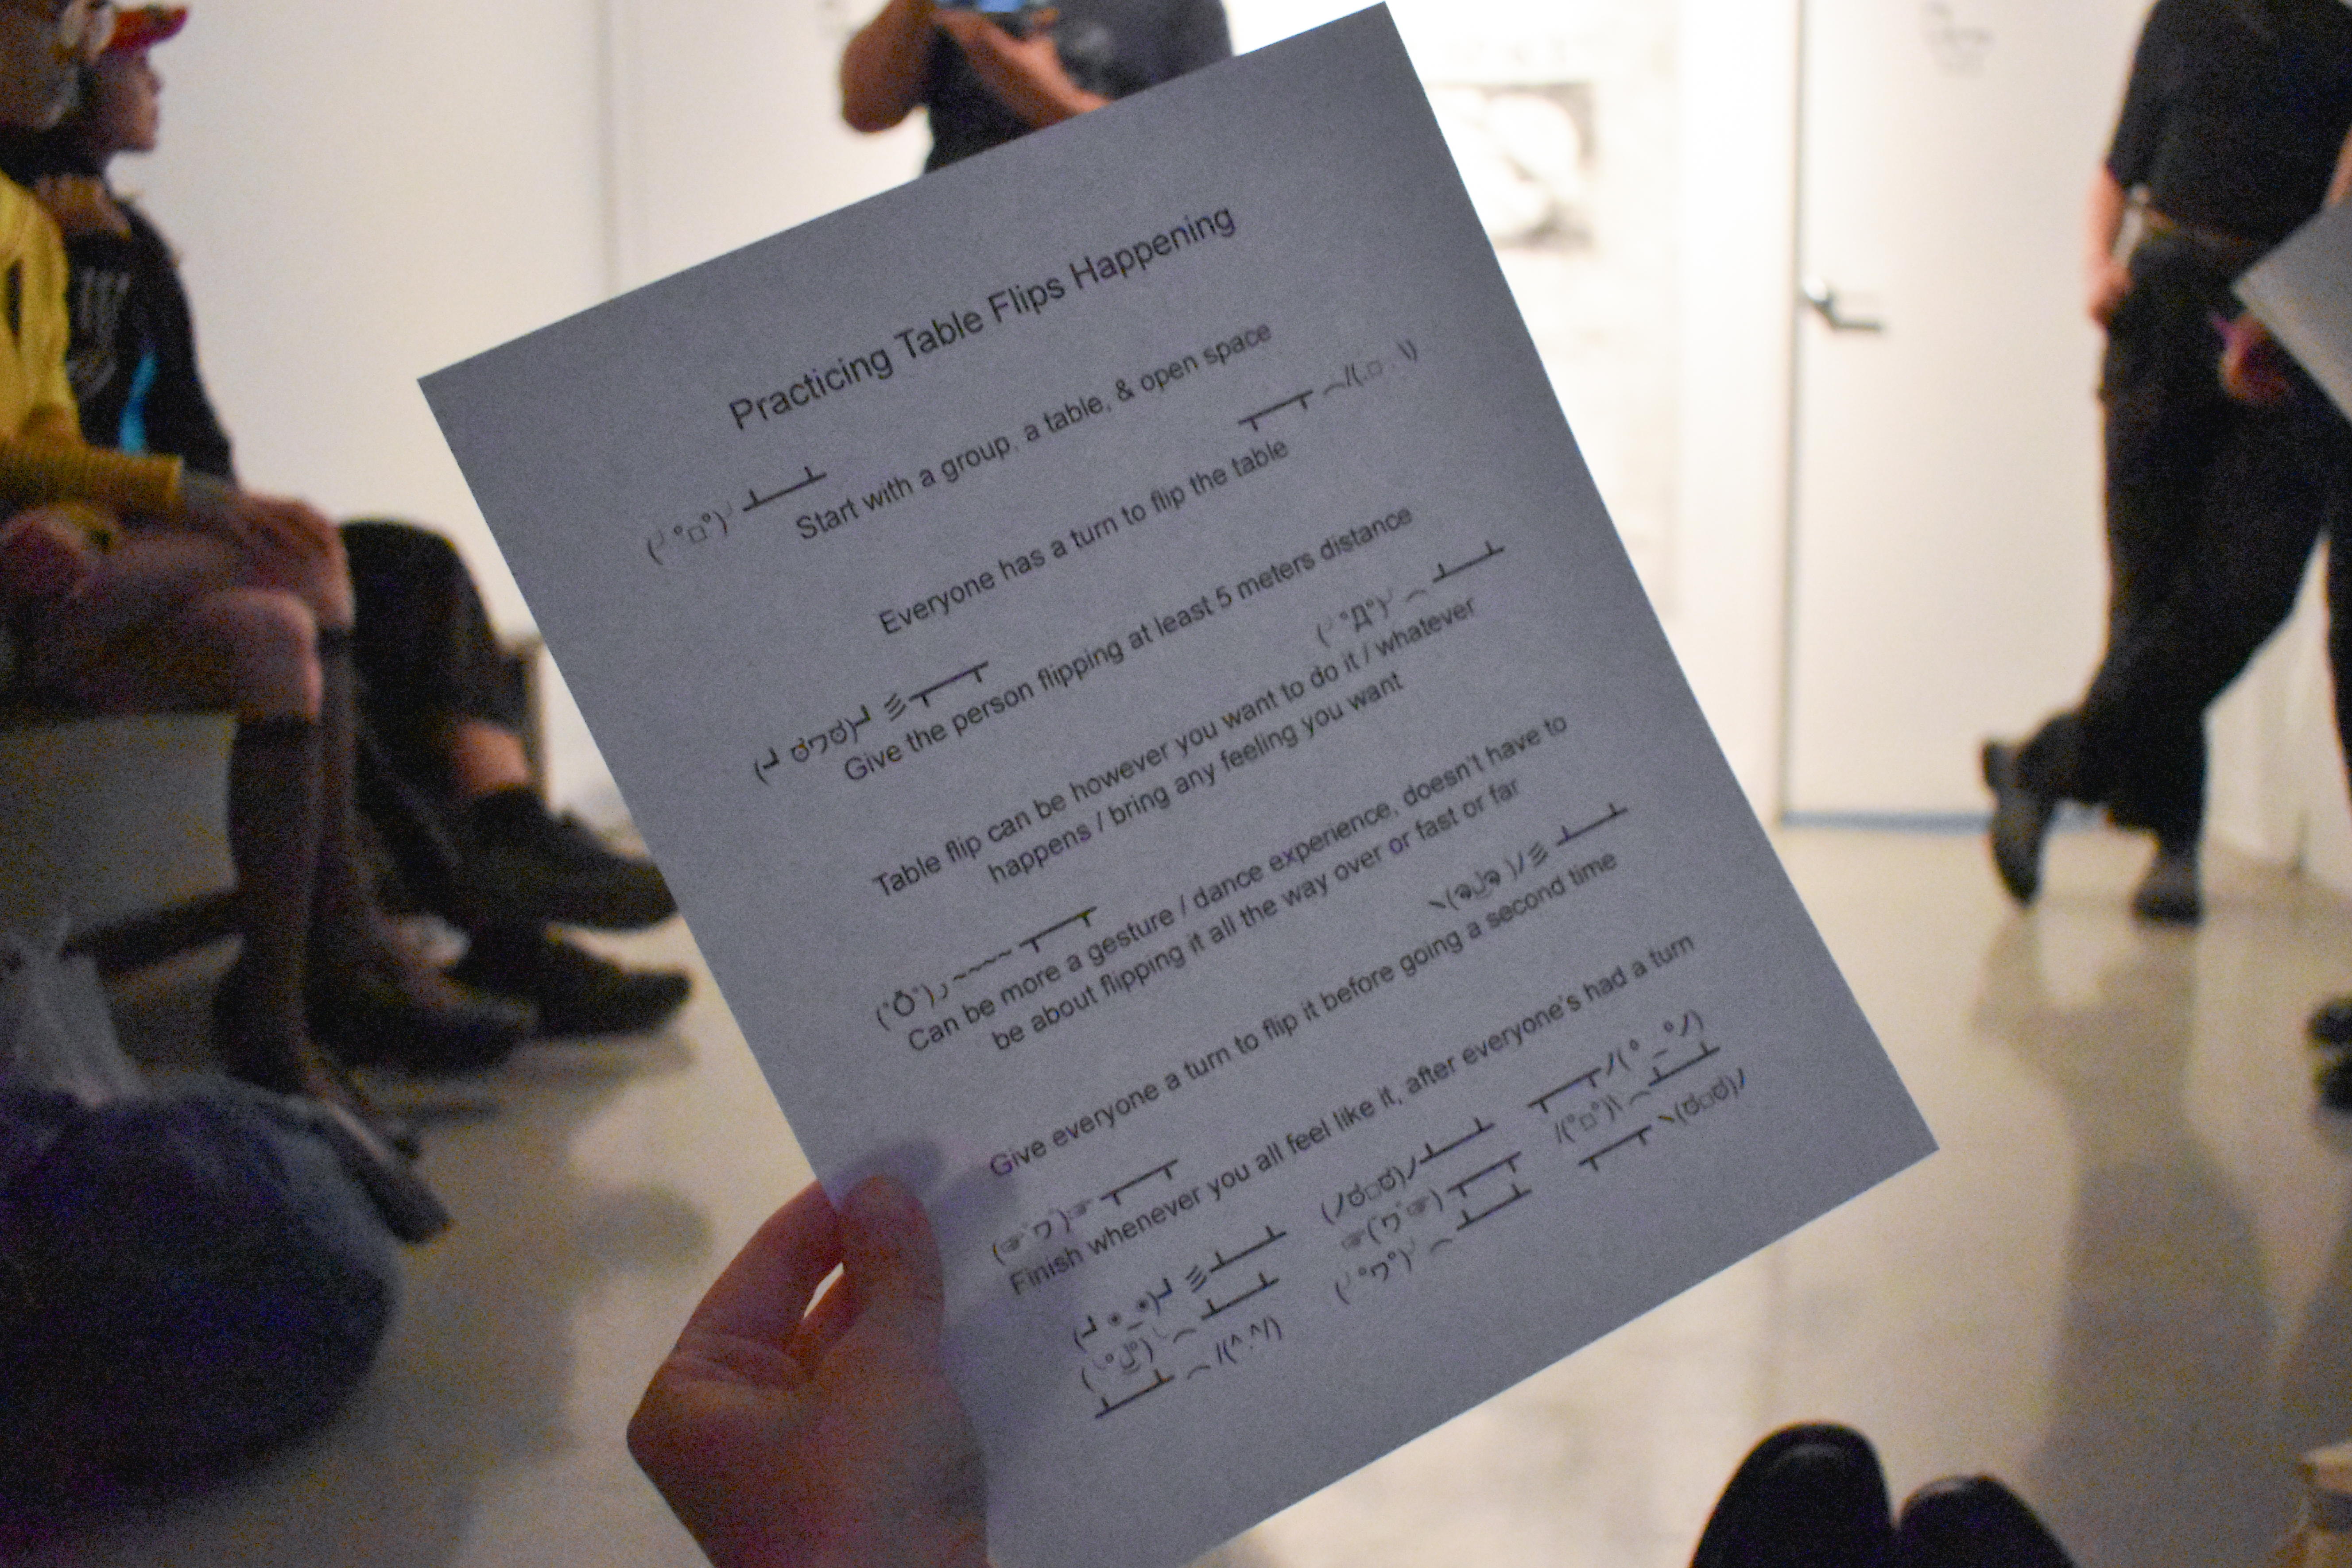 Practicing Table Flips Happening
(╯°□°)╯ ┻━┻
Start with a group, a table, & open space
┬─┬ ⌒/(.□ . \)
Everyone has a turn to flip the table
(┛ಠワಠ)┛彡┬─┬
Give the person flipping at least 5 meters distance
(╯°Д°)╯⌒ ┻━┻
Table flip can be however you want to do it / whatever
happens / bring any feeling you want
(°Ō°)⁠ノ~~~~ ┬─┬
Can be more a gesture / dance experience, doesn't have to
be about flipping it all the way over or fast or far
ヽ(ຈل͜ຈ)ﾉ彡 ┻━┻
Give everyone a turn to flip it before going a second time
(☞ﾟヮﾟ)☞ ┬─┬
Finish whenever you all feel like it, after everyone's had a turn
(┛◉_◉)┛彡┻━┻ (ノಠ□ಠ)ノ┻━┻ ┬─┬ノ( º _ ºノ)
(╯°ل͜°)╯⌒ ┻━┻ ☜(ヮ ☜) ┬─┬ /(°□°)\⌒ ┻━┻
┻━┻ ⌒/(^.^/) (╯°ヮ°)╯⌒ ┻━┻ ┬─┬ ヽ(ಠ□ಠ)ノ